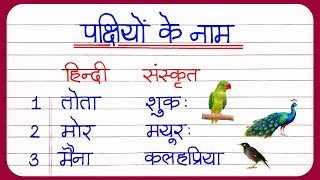 पक्षियों के नाम
हिन्दी संस्कृत
1 तोता शुकः
2 मोर मयूरः
3 मैना कलहप्रिया